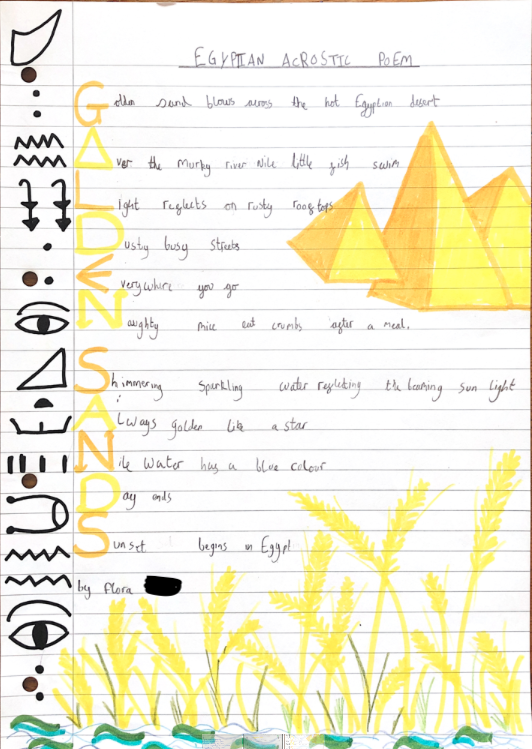 EGYPTIAN ACROSTIC POEM
Golden sand blows across the hot Egyptian desert
Over the Murky river Nile little fish swim
Light reflects on rusty rooftops
Dusty busy streets
Everywhere you go
Naughty mice eat crumbs after a meal.
Shimmering Sparkling water reflecting the beaming sun light
Always golden like a star
Nile Water has a blue colour
Day ends
Sunset begins in Egypt
by Flora